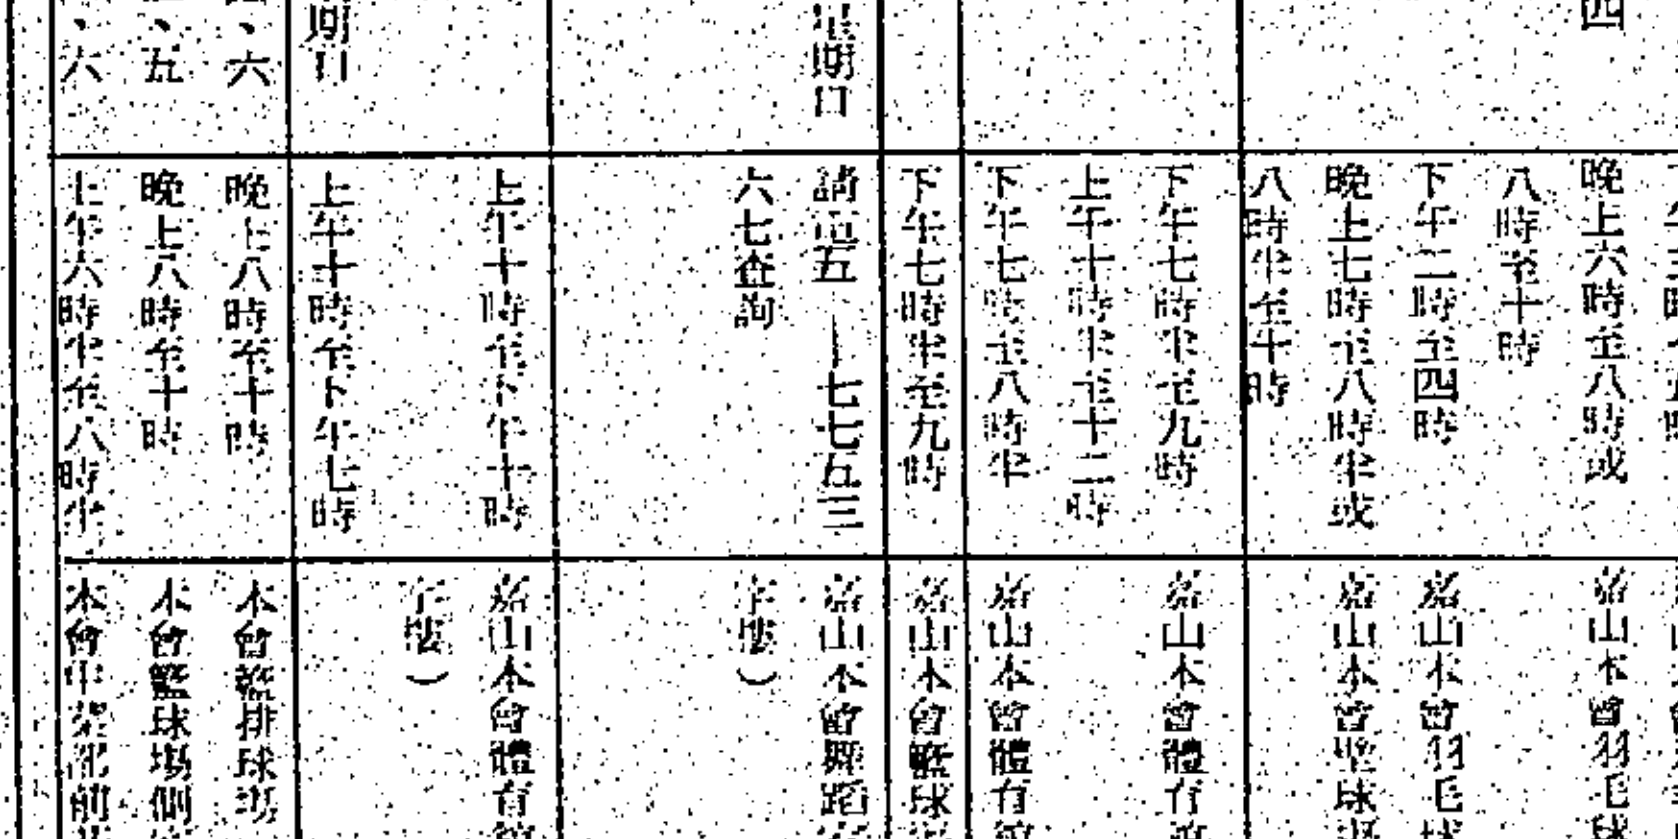 四
晚上六時至八時或
八時至十時
下午二時至四時
晚上七時至八時半或
八時半至十時
下午七時半至九時
上午十時半至十二時
下午七時至八時半
下午七時半至九時
星期日
請電五—七七五三
六七查詢
上午十時至下午十時
期日
上午十時至下午七時
、六
晚上八時至十時
、五
晚上八時至十時
、六
上午六時半至八時半
嘉山本會羽毛球
嘉山本會羽毛球
嘉山本會壁球場
嘉山本會體育館
嘉山本會體育館
嘉山本會籃球
嘉山本會舞蹈
字樓）
嘉山本會體育館
字樓）
本會籃排球場
本會籃球場側
本會中